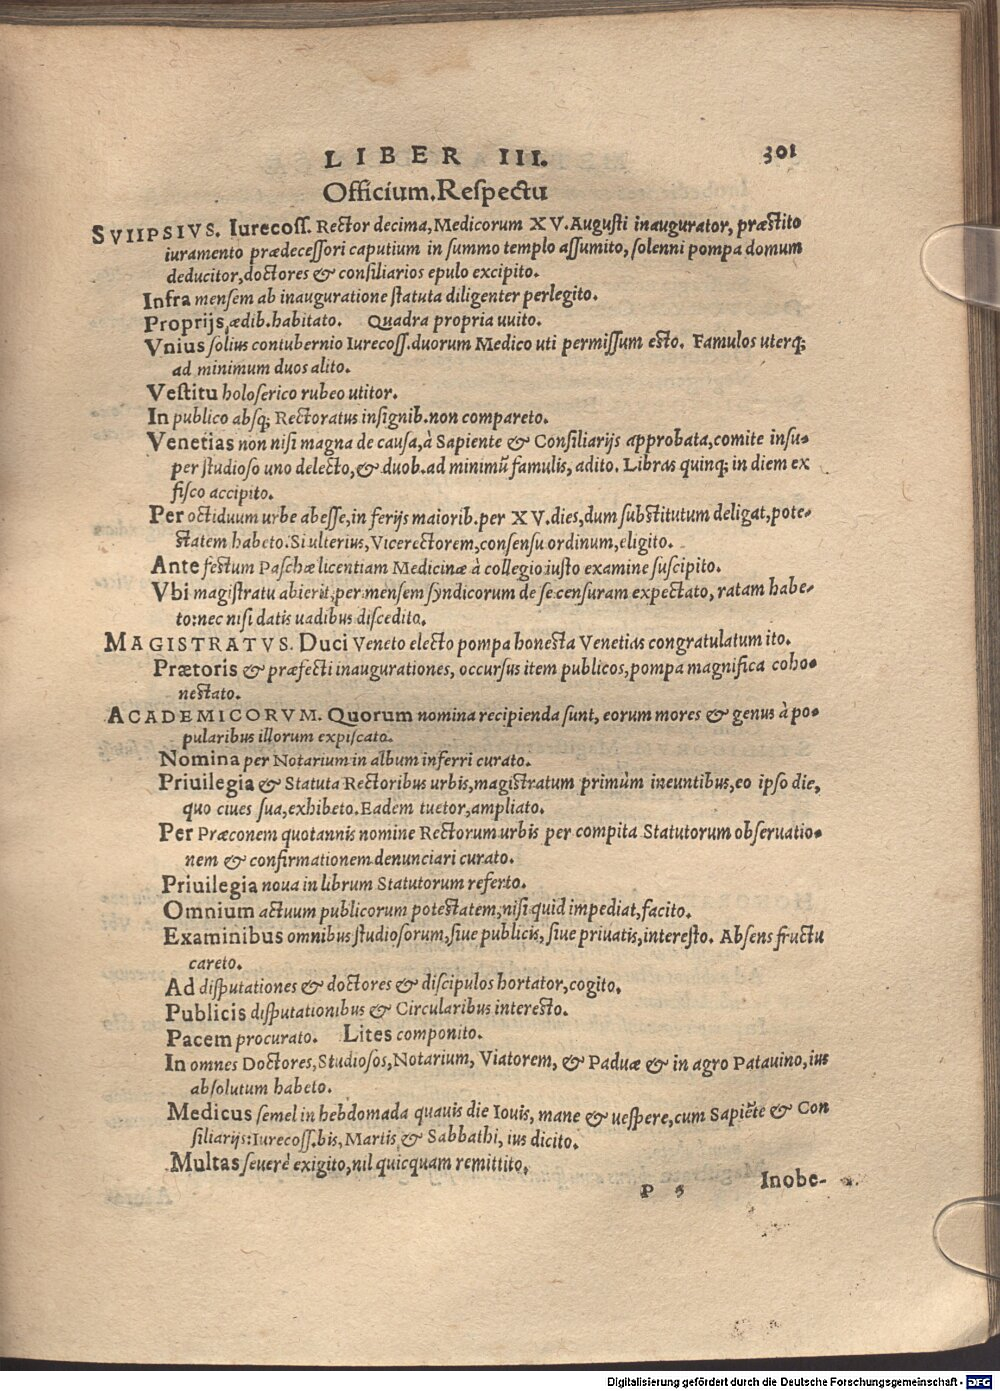 LIBER III. 301
Officium. Respectu
SVIIPSIVS. Iurecoss. Rector decima, Medicorum XV. Augusti inaugurator, præstito
iuramento prædecessori caputium in summo templo assumito, solenni pompa domum
deducitor, doctores & consiliarios epulo excipito.
Infra mensem ab inauguratione statuta diligenter perlegito.
Proprijs ædib. habitato. Quadra propria uuito.
Vnius solius contubernio Iurecoss. duorum Medico uti permissum esto. Famulos uterq;
ad minimum duos alito.
Vestitu holoserico rubeo utitor.
In publico absq; Rectoratus insignib. non compareto.
Venetias non nisi magna de causa, à Sapiente & Consiliarijs approbata, comite insu-
per studioso uno delecto, & duob. ad minimũ famulis, adito. Libras quinq; in diem ex
fisco accipito.
Per octiduum urbe abesse, in ferijs maiorib. per XV. dies, dum substitutum deligat, pote-
statem habeto. Si ulterius, Vicerectorem, consensu ordinum, eligito.
Ante festum Paschæ licentiam Medicinæ à collegio iusto examine suscipito.
Vbi magistratu abierit, per mensem syndicorum de se censuram expectato, ratam habe-
to: nec nisi datis uadibus discedito.
MAGISTRATVS. Duci Veneto electo pompa honesta Venetias congratulatum ito.
Prætoris & præfecti inaugurationes, occursus item publicos, pompa magnifica coho-
nestato.
ACADEMICORVM. Quorum nomina recipienda sunt, eorum mores & genus à po-
pularibus illorum expiscato.
Nomina per Notarium in album inferri curato.
Priuilegia & Statuta Rectoribus urbis, magistratum primùm ineuntibus, eo ipso die,
quo ciues sua, exhibeto. Eadem tuetor, ampliato.
Per Præconem quotannis nomine Rectorum urbis per compita Statutorum obseruatio-
nem & confirmationem denunciari curato.
Priuilegia noua in librum Statutorum referto.
Omnium actuum publicorum potestatem, nisi quid impediat, facito.
Examinibus omnibus studiosorum, siue publicis, siue priuatis, interesto. Absens fructu
careto.
Ad disputationes & doctores & discipulos hortator, cogito.
Publicis disputationibus & Circularibus interesto.
Pacem procurato. Lites componito.
In omnes Doctores, Studiosos, Notarium, Viatorem, & Paduæ & in agro Patauino, ius
absolutum habeto.
Medicus semel in hebdomada quauis die Iouis, mane & uespere, cum Sapiẽte & Con
siliarijs: Iurecoss. bis, Martis & Sabbathi, ius dicito.
Multas seuerè exigito, nil quicquam remittito.
P 5 Inobe-
Digitalisierung gefördert durch die Deutsche Forschungsgemeinschaft - DFG